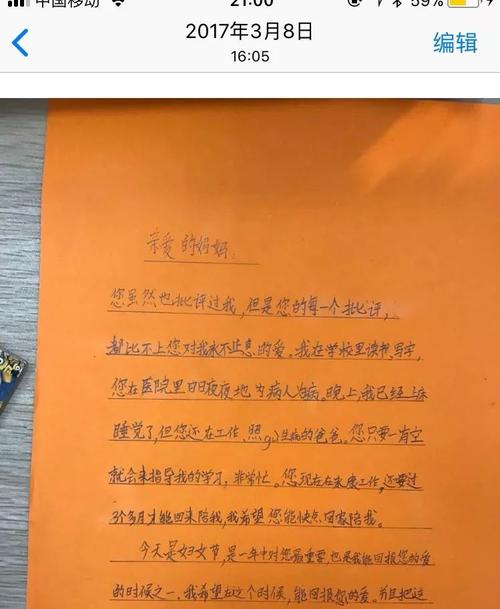 中国移动
21:00
59%
2017年3月8日
编辑
16:05
亲爱的妈妈:
您虽然也批评过我,但是您的每一个批评,
都比不上您对我永不止息的爱。我在学校里读书、写字,
您在医院里日日夜夜地为病人治病。晚上,我已经
睡觉了,但您还在工作、照gù生病的爸爸。您只要一有空
就会来指导我的学习,非常忙。您现在在来康工作,还要过
3个多月才能回来陪我,我希望您能快点回家陪我。
今天是妇女节,是一年中对您最重要,也是我能回报您的爱
的时候之一。我希望在这个时候,能回报您的爱。并且把这